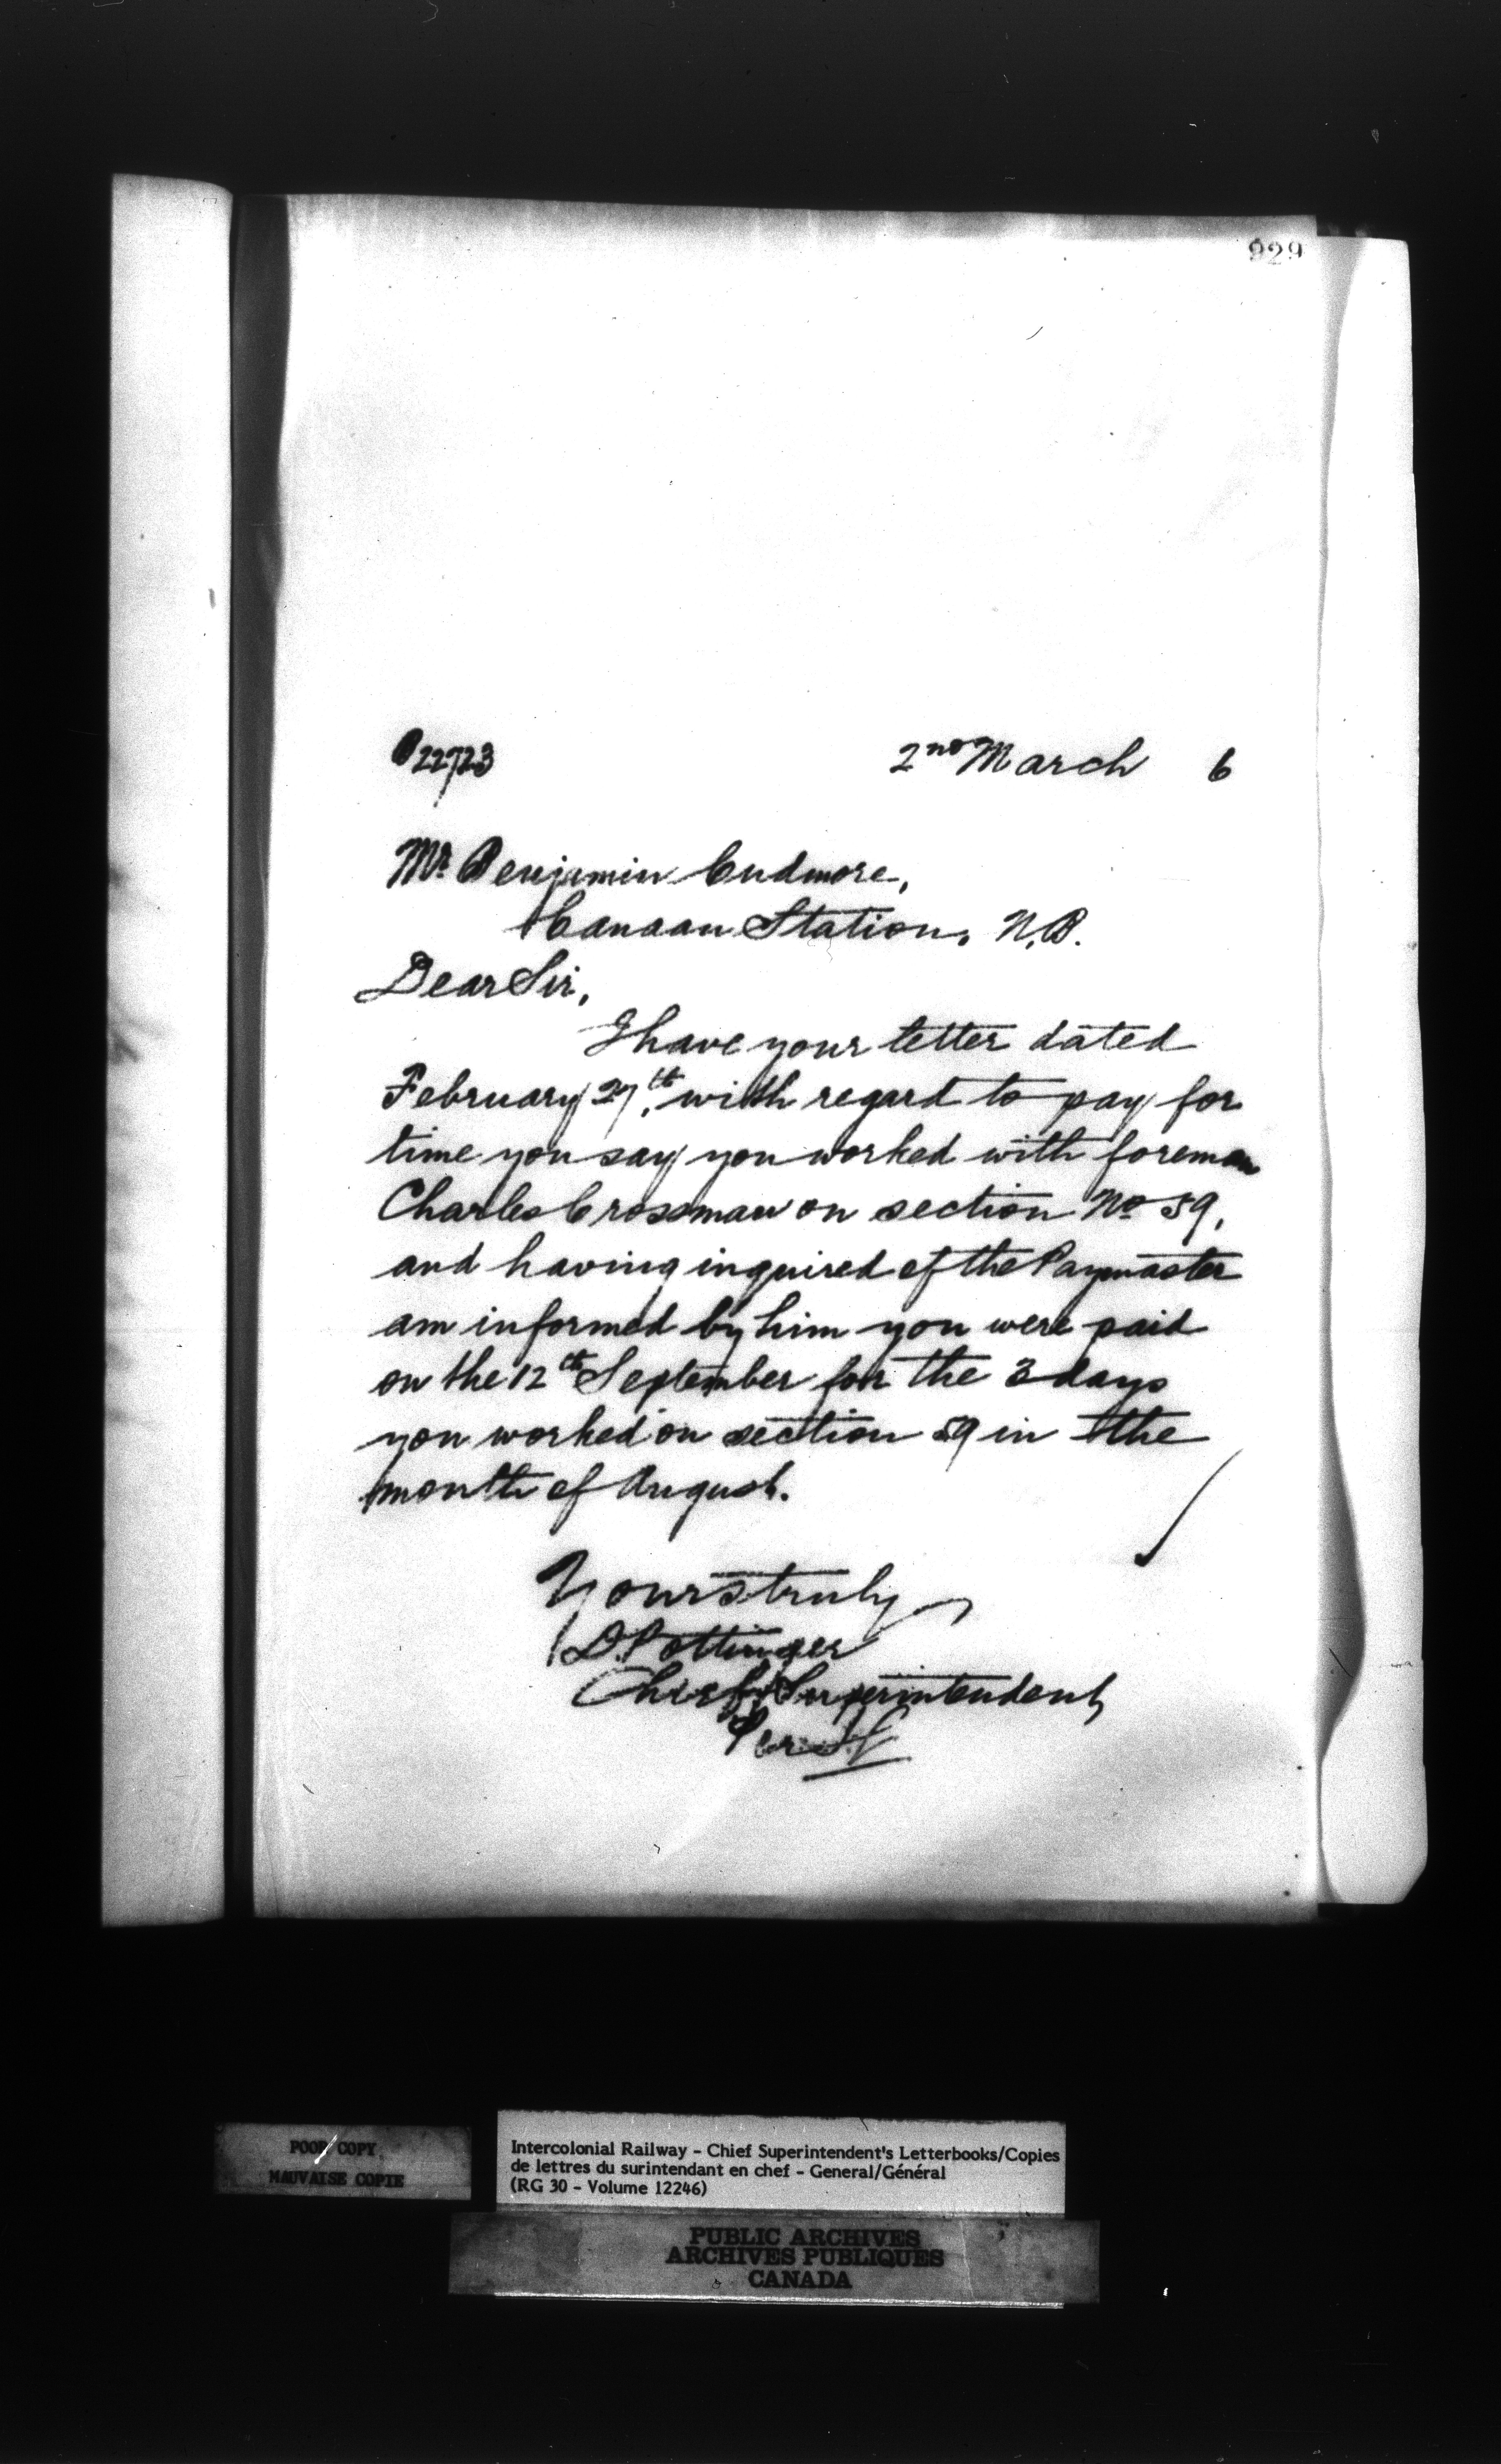 929
22723 2nd March 6
Mr. Benjamin Cudmore,
Canaan Station, N.B.
Dear Sir,
I have your letter dated
February 27th, with regard to pay for
time you say you worked with foreman
Charles Crossman on section No 59,
and having inquired of the Paymaster
am informed by him you were paid
on the 12th September for the 3 days
you worked on section 59 in the
month of August.
Yours truly
D. Pottinger
Chief Superintendent
Per
POOR COPY
MAUVAISE COPIE
Intercolonial Railway - Chief Superintendent's Letterbooks/Copies
de lettres du surintendant en chef - General/Général
(RG 30 - Volume 12246)
PUBLIC ARCHIVES
ARCHIVES PUBLIQUES
CANADA